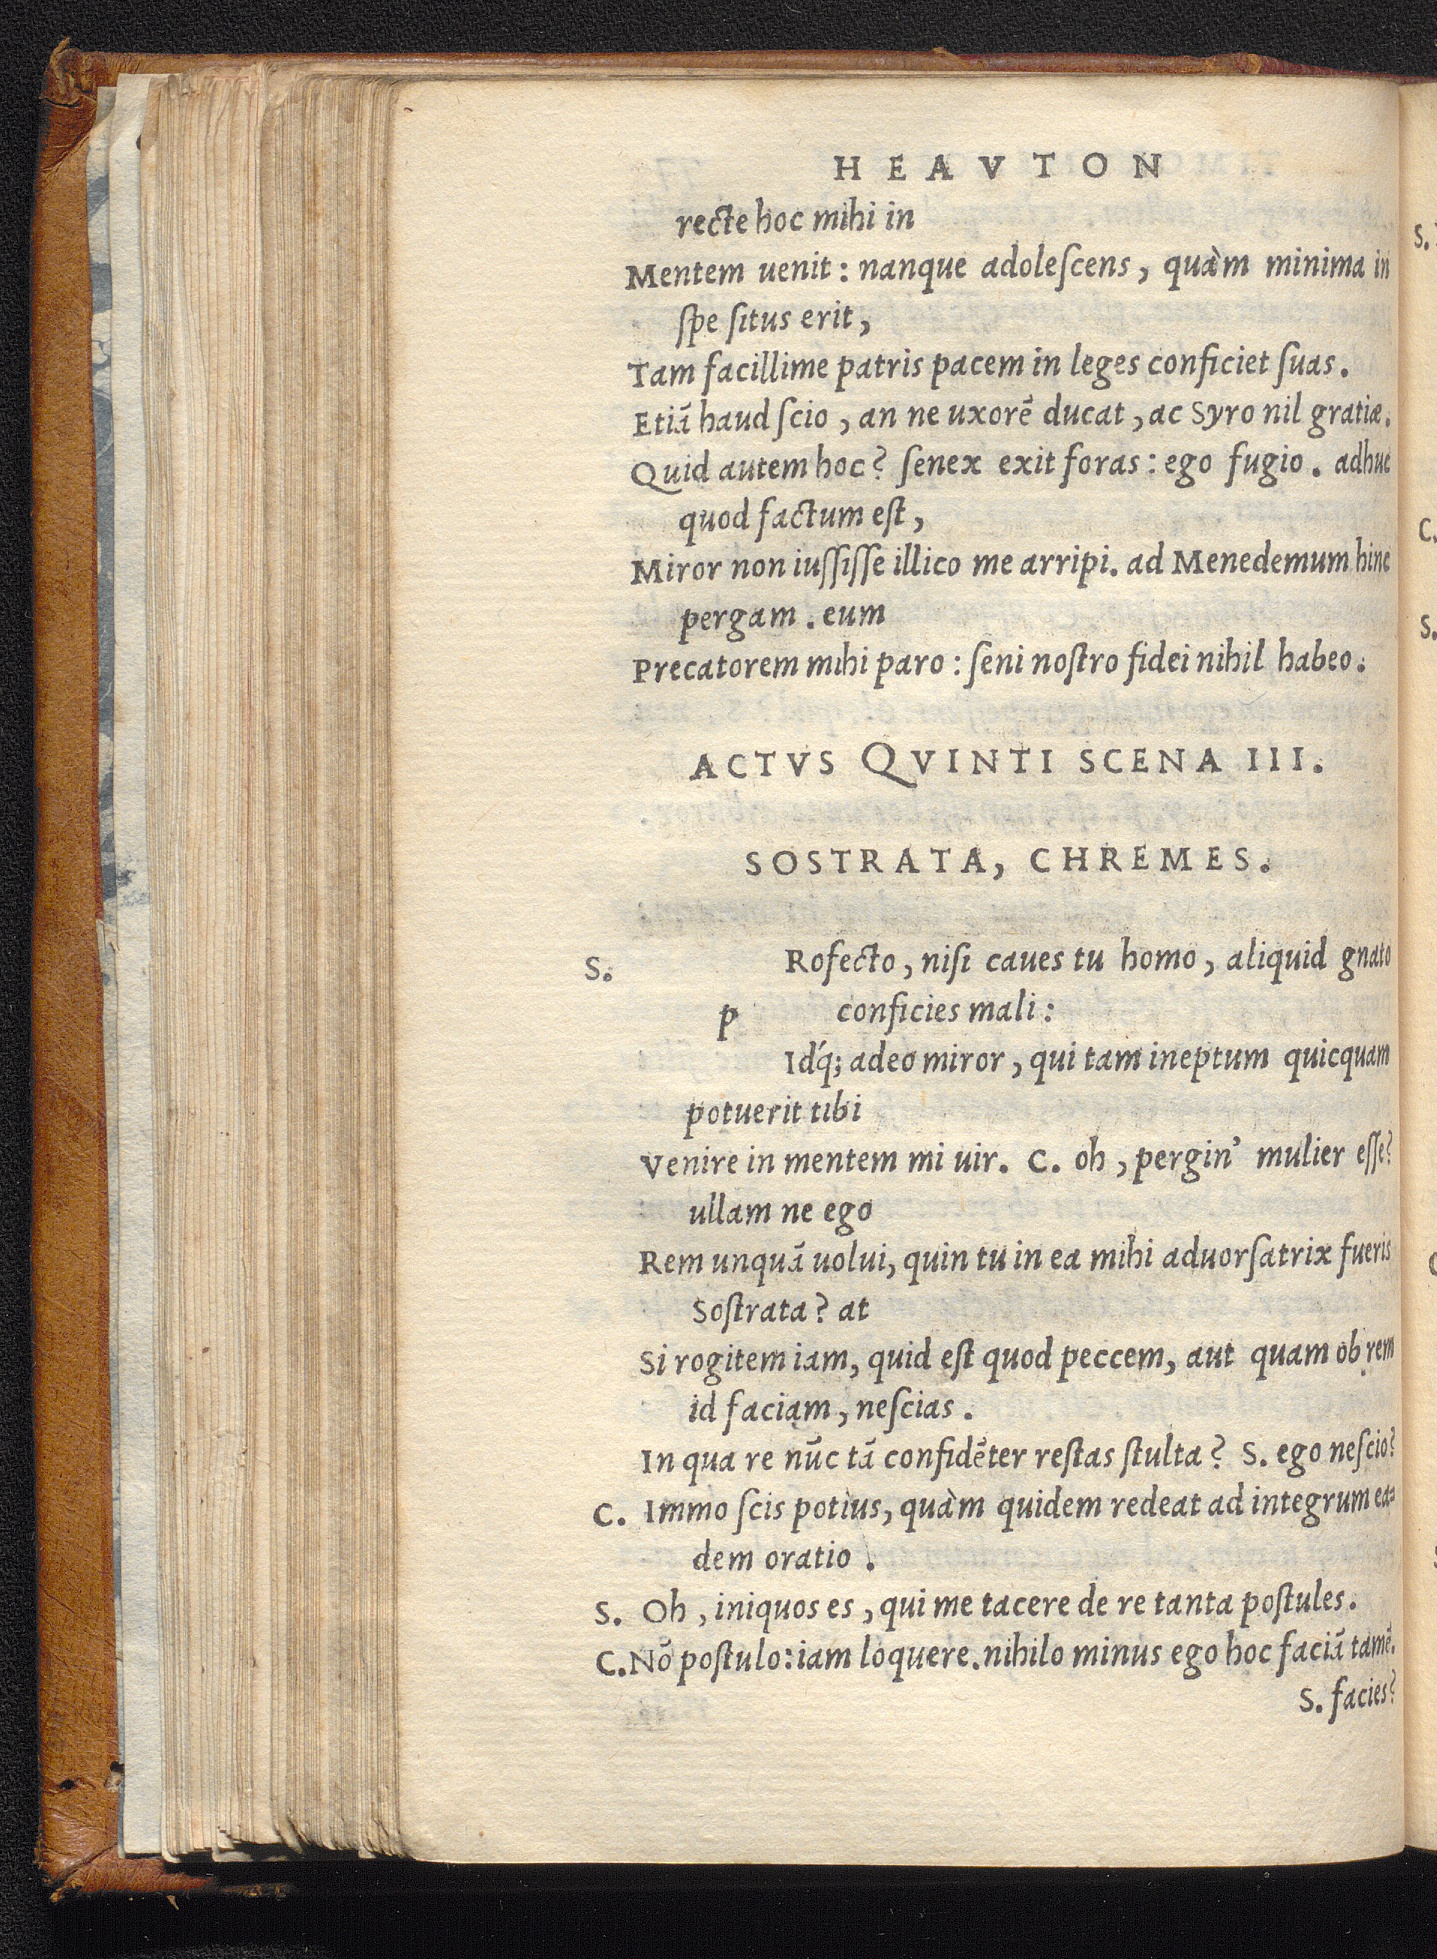 HEAVTON
recte hoc mihi in
Mentem uenit: nanque adoleſcens, quàm minima in
ſpe ſitus erit,
Tam facillime patris pacem in leges conficiet ſuas.
Etiā haud ſcio, an ne uxorē ducat, ac Syro nil gratiæ.
Quid autem hoc? ſenex exit foras: ego fugio. adhuc
quod factum eſt,
Miror non iuſſiſſe illico me arripi. ad Menedemum hinc
pergam. eum
Precatorem mihi paro: ſeni noſtro fidei nihil habeo.
ACTVS QVINTI SCENA III.
SOSTRATA, CHREMES.
S. Rofecto, niſi caues tu homo, aliquid gnato
p conficies mali:
Idq́; adeo miror, qui tam ineptum quicquam
potuerit tibi
Venire in mentem mi uir. C. oh, pergin' mulier eſſe?
ullam ne ego
Rem unquā uolui, quin tu in ea mihi aduorſatrix fueris
Soſtrata? at
Si rogitem iam, quid eſt quod peccem, aut quam ob rem
id faciam, neſcias.
In qua re nūc tā confidēter reſtas ſtulta? S. ego neſcio?
C. Immo ſcis potius, quàm quidem redeat ad integrum ea=
dem oratio.
S. Oh, iniquos es, qui me tacere de re tanta poſtules.
C. Nō poſtulo: iam loquere. nihilo minus ego hoc faciā tamē.
S. facies?
S.
C.
S.